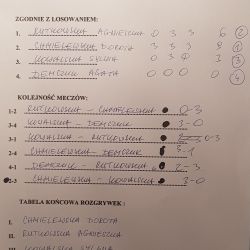 ZGODNIE Z LOSOWANIEM:
1. RUTKOWSKA AGNIESZKA 0 3 3 6 2
2. CHMIELEWSKA DOROTA 3 3 3 9 1
3. KOWALSKA SYLWIA 0 3 0 3 3
4. DEMCZUK AGATA 0 0 0 0 4
KOLEJNOŚĆ MECZÓW:
1-2 RUTKOWSKA - CHMIELEWSKA 0-3
KOWALSKA - DEMCZUK 3-0
3-1 KOWALSKA - RUTKOWSKA 0-3
2-4 CHMIELEWSKA - DEMCZUK 3-1
4-1 DEMCZUK - RUTKOWSKA -3
2-3 CHMIELEWSKA - KOWALSKA 3-0
TABELA KOŃCOWA ROZGRYWEK:
I. CHMIELEWSKA DOROTA
II. RUTKOWSKA AGNIESZKA
KOWALSKA SYLWIA